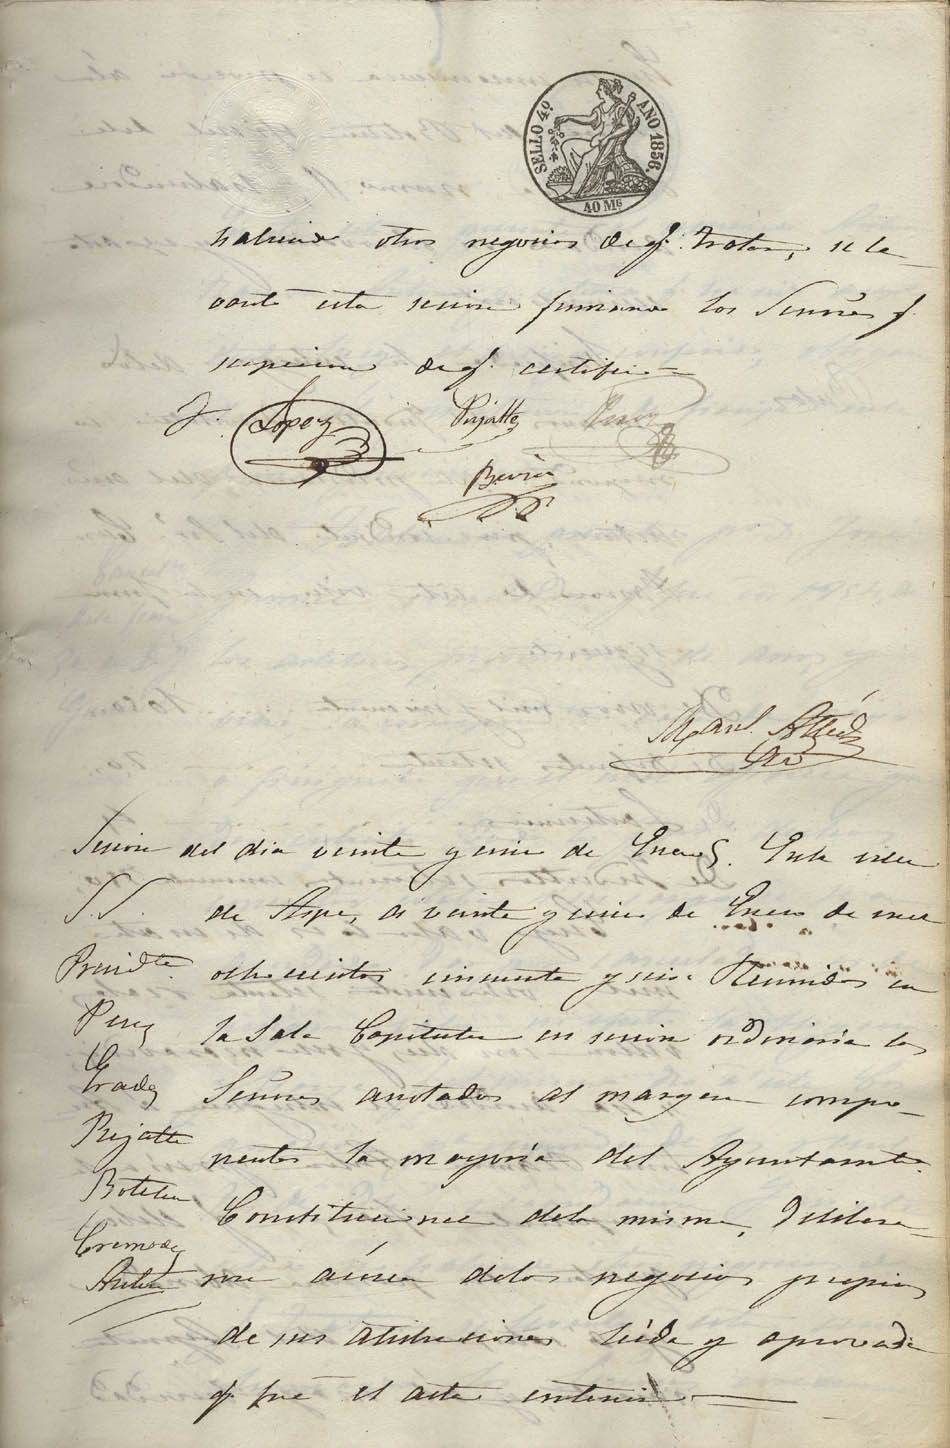 SELLO 4º AÑO 1856.
40 Mˢ
habiendo otros negocios de q. tratar, se le-
vantó esta sesion firmando los Señores q.
supieron de q. certifico
Lopez Pujalte Perez
Manl.
Sesion del dia veinte y seis de Enero. En la
S.S. de Aspe, á veinte y seis de Enero de mil
Presidte. ochocientos cincuenta y seis. Reunidos en
Perez la Sala Capitular en sesion ordinaria los
Prades Señores anotados al margen compo-
Pujalte nentes la mayoria del Ayuntamto.
Botella Constitucional dela misma, delibera-
Cremades ron acerca delos negocios propios
de sus atribuciones leida y aprovada
q. fué el acta anterior